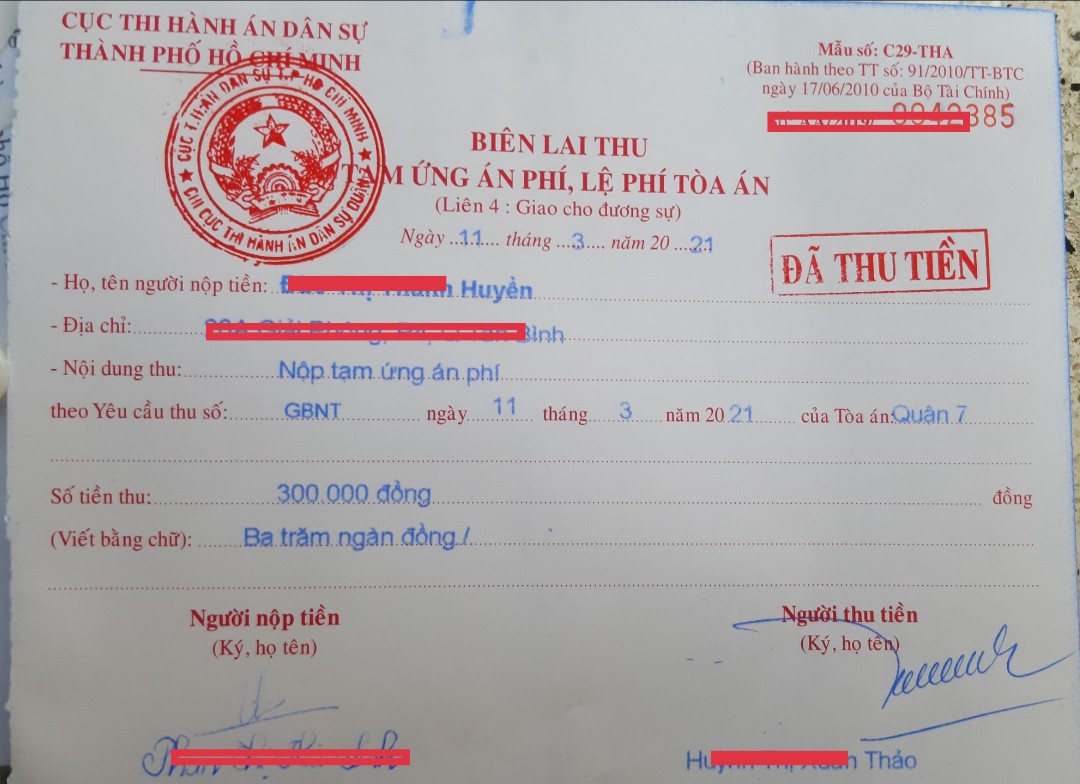 CỤC THI HÀNH ÁN DÂN SỰ
THÀNH PHỐ HỒ CHÍ MINH
Mẫu số: C29-THA
(Ban hành theo TT số: 91/2010/TT-BTC
ngày 17/06/2010 của Bộ Tài Chính)
385
CỤC T.HÀNH ÁN DÂN SỰ T.P HỒ CHÍ MINH
CHI CỤC THI HÀNH ÁN DÂN SỰ QUẬN
BIÊN LAI THU
TẠM ỨNG ÁN PHÍ, LỆ PHÍ TÒA ÁN
(Liên 4 : Giao cho đương sự)
Ngày 11 tháng 3 năm 20 21
ĐÃ THU TIỀN
- Họ, tên người nộp tiền: Huyền
- Địa chỉ: Bình
- Nội dung thu: Nộp tạm ứng án phí
theo Yêu cầu thu số: GBNT ngày 11 tháng 3 năm 20 21 của Tòa án: Quận 7
Số tiền thu: 300.000 đồng đồng
(Viết bằng chữ): Ba trăm ngàn đồng /
Người nộp tiền
Người thu tiền
(Ký, họ tên)
(Ký, họ tên)
Thảo